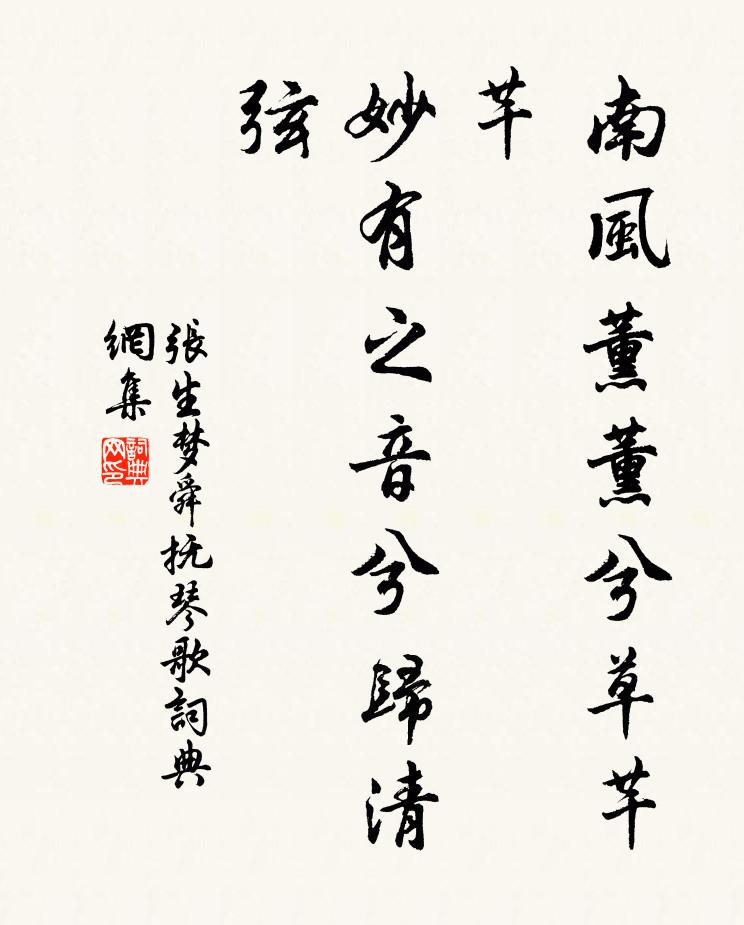 南風薰薰兮草芊
芊
妙有之音兮歸清
弦
張生梦舜抚琴歌詞典
網集
詞典
网印